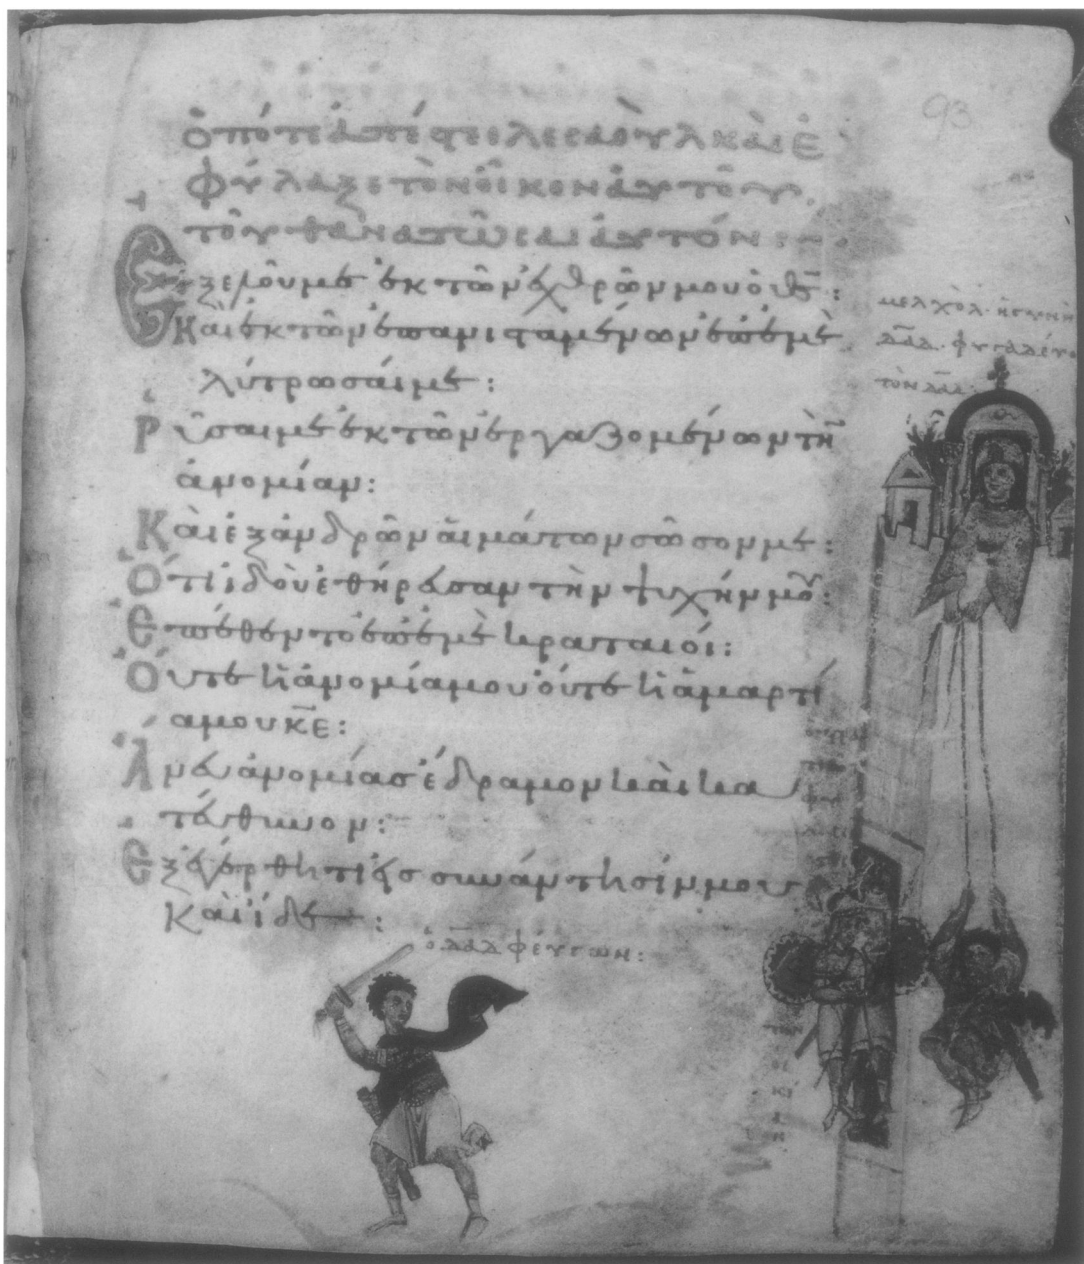 93
ὁπότε ἀπέστειλε σαοὺλ καὶ ἐ
φύλαξε τὸν οἶκον αὐτοῦ.
τοῦ θανατῶσαι αὐτόν
Ἐξελοῦ με ἐκ τῶν ἐχθρῶν μου ὁ θ̅ς̅:
Καὶ ἐκ τῶν ἐπανισταμένων ἐπ' ἐμὲ
λύτρωσαί με:
Ῥῦσαί με ἐκ τῶν ἐργαζομένων τὴν
ἀνομίαν:
Καὶ ἐξ ἀνδρῶν αἱμάτων σῶσόν με:
Ὅτι ἰδοὺ ἐθήρασαν τὴν ψυχήν μου:
Ἐπέθεντο ἐπ' ἐμὲ κραταιοί:
Οὔτε ἡ ἀνομία μου οὔτε ἡ ἁμαρτί
α μου κ̅ε̅:
Ἄνευ ἀνομίας ἔδραμον καὶ κα
τεύθυνον:
Ἐξεγέρθητι εἰς συνάντησίν μου
Καὶ ἴδε:
μελχόλ ἡ γυνὴ
δ̅α̅δ̅ φυγαδεύου
τὸν δ̅α̅δ̅
ὁ δ̅α̅δ̅ φεύγων: